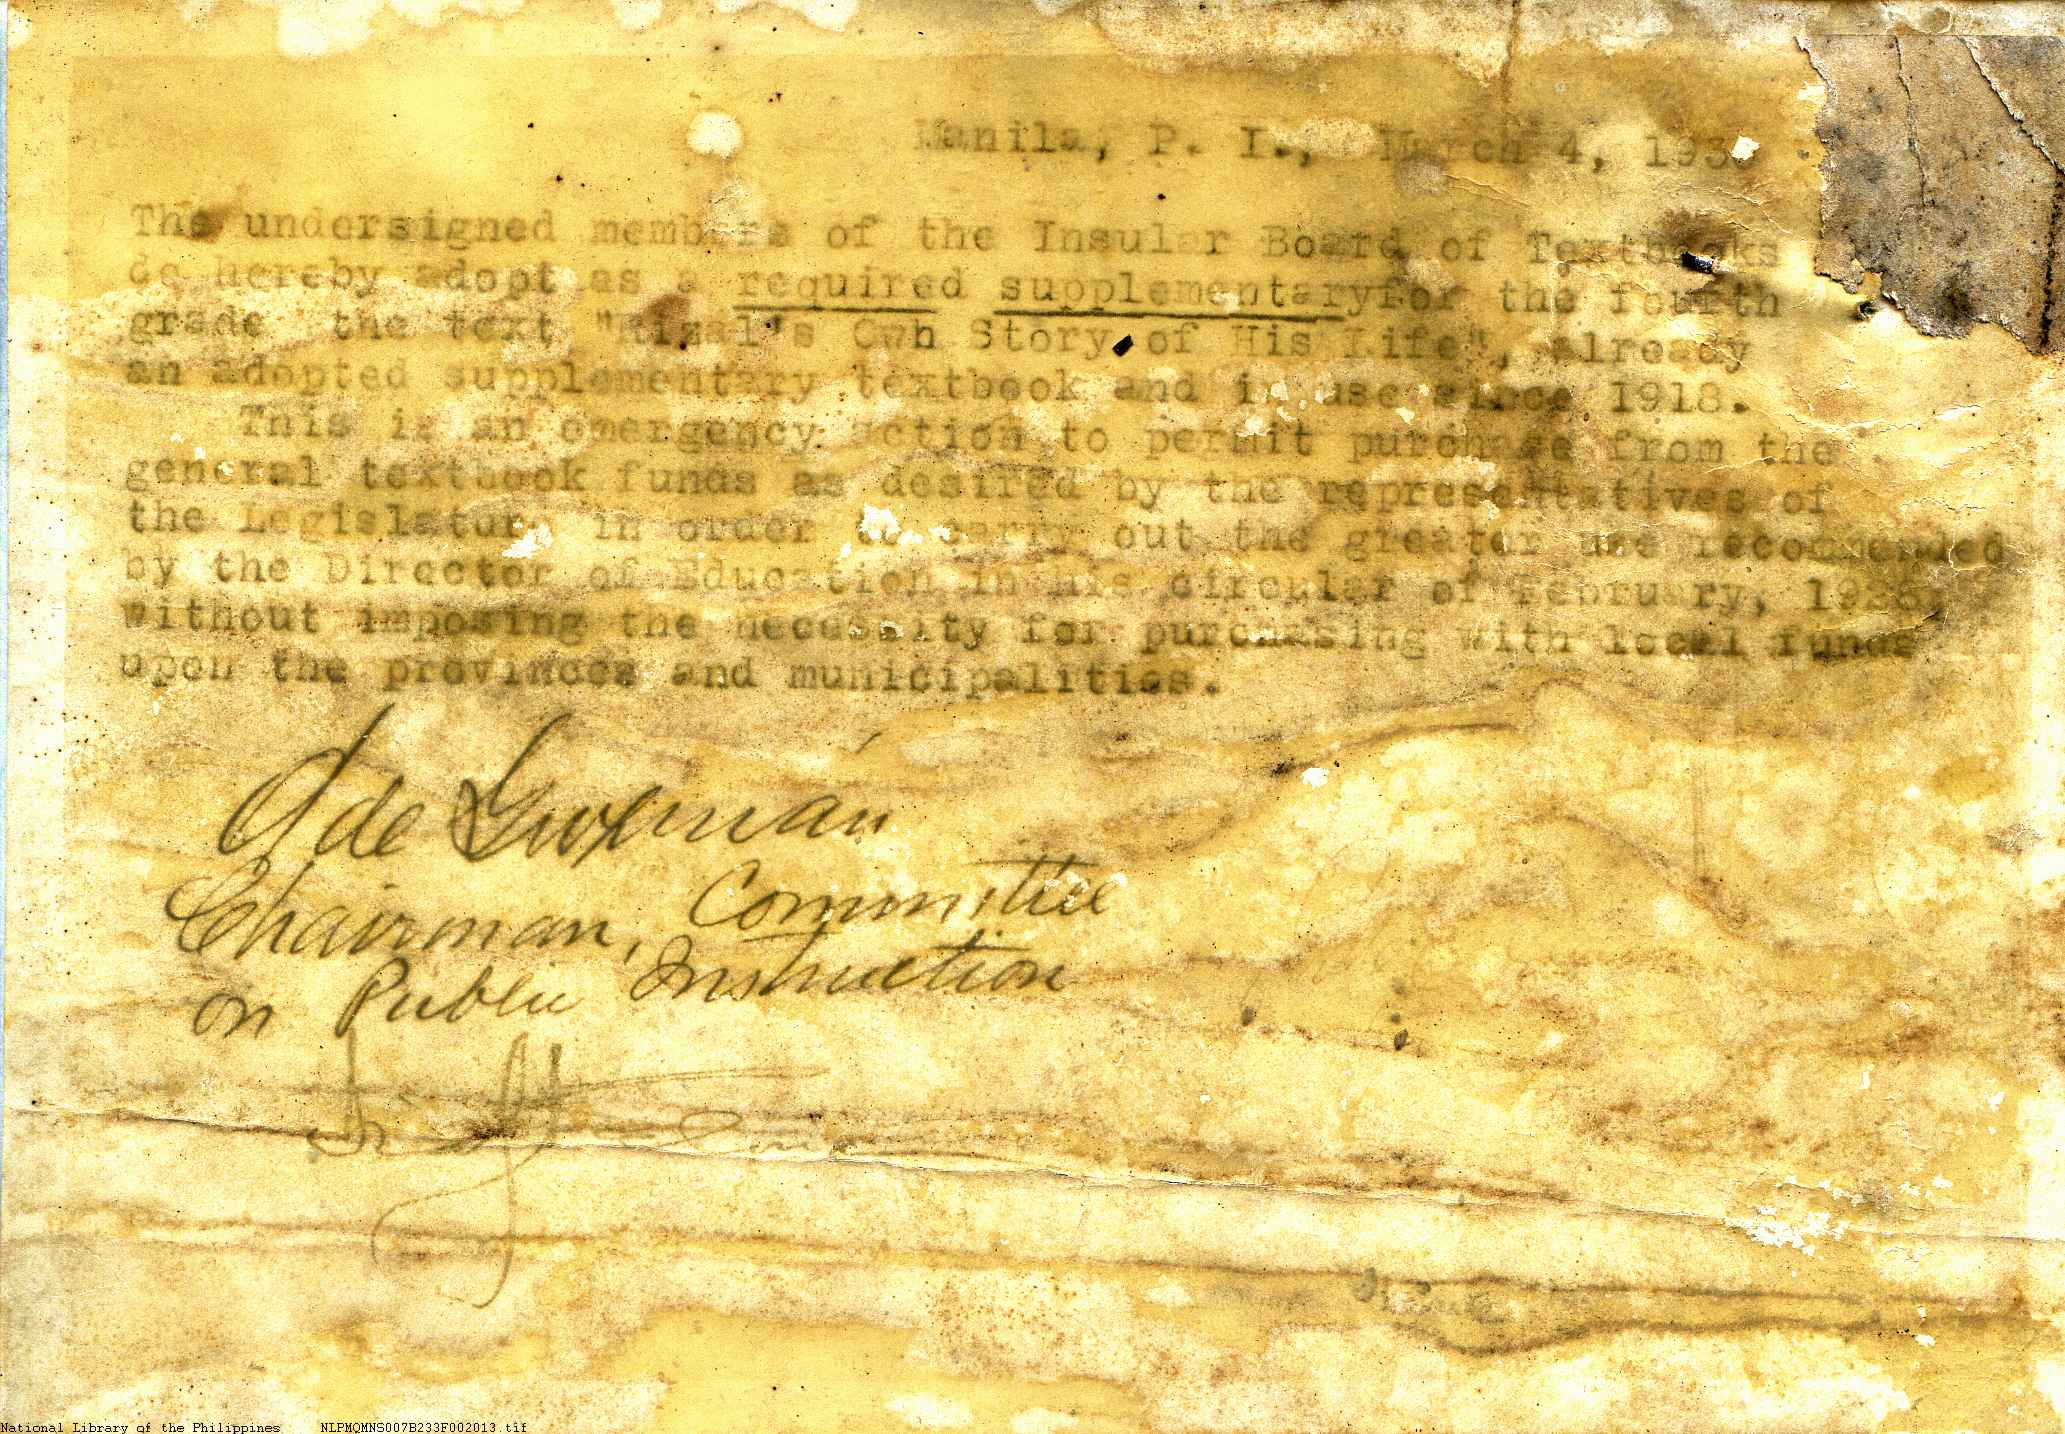 Manila, P. I., March 4, 193
The undersigned members of the Insular Board of Textbooks
do hereby adopt as a required supplementaryfor the fourth
grade the text "Rizal's Own Story of His Life", already
an adopted supplementary textbook and in use since 1918.
This is an emergency action to permit purchase from the
general textbook funds as desired by the representatives of
the Legislature in order to carry out the greater use recommended
by the Director of Education in his circular of February,
without imposing the necessity for purchasing with local funds
upon the provinces and municipalities.
de Guzmán
Chairman, Committee
on Public Instruction
National Library of the Philippines NLPMQMNS007B233F002013.tif